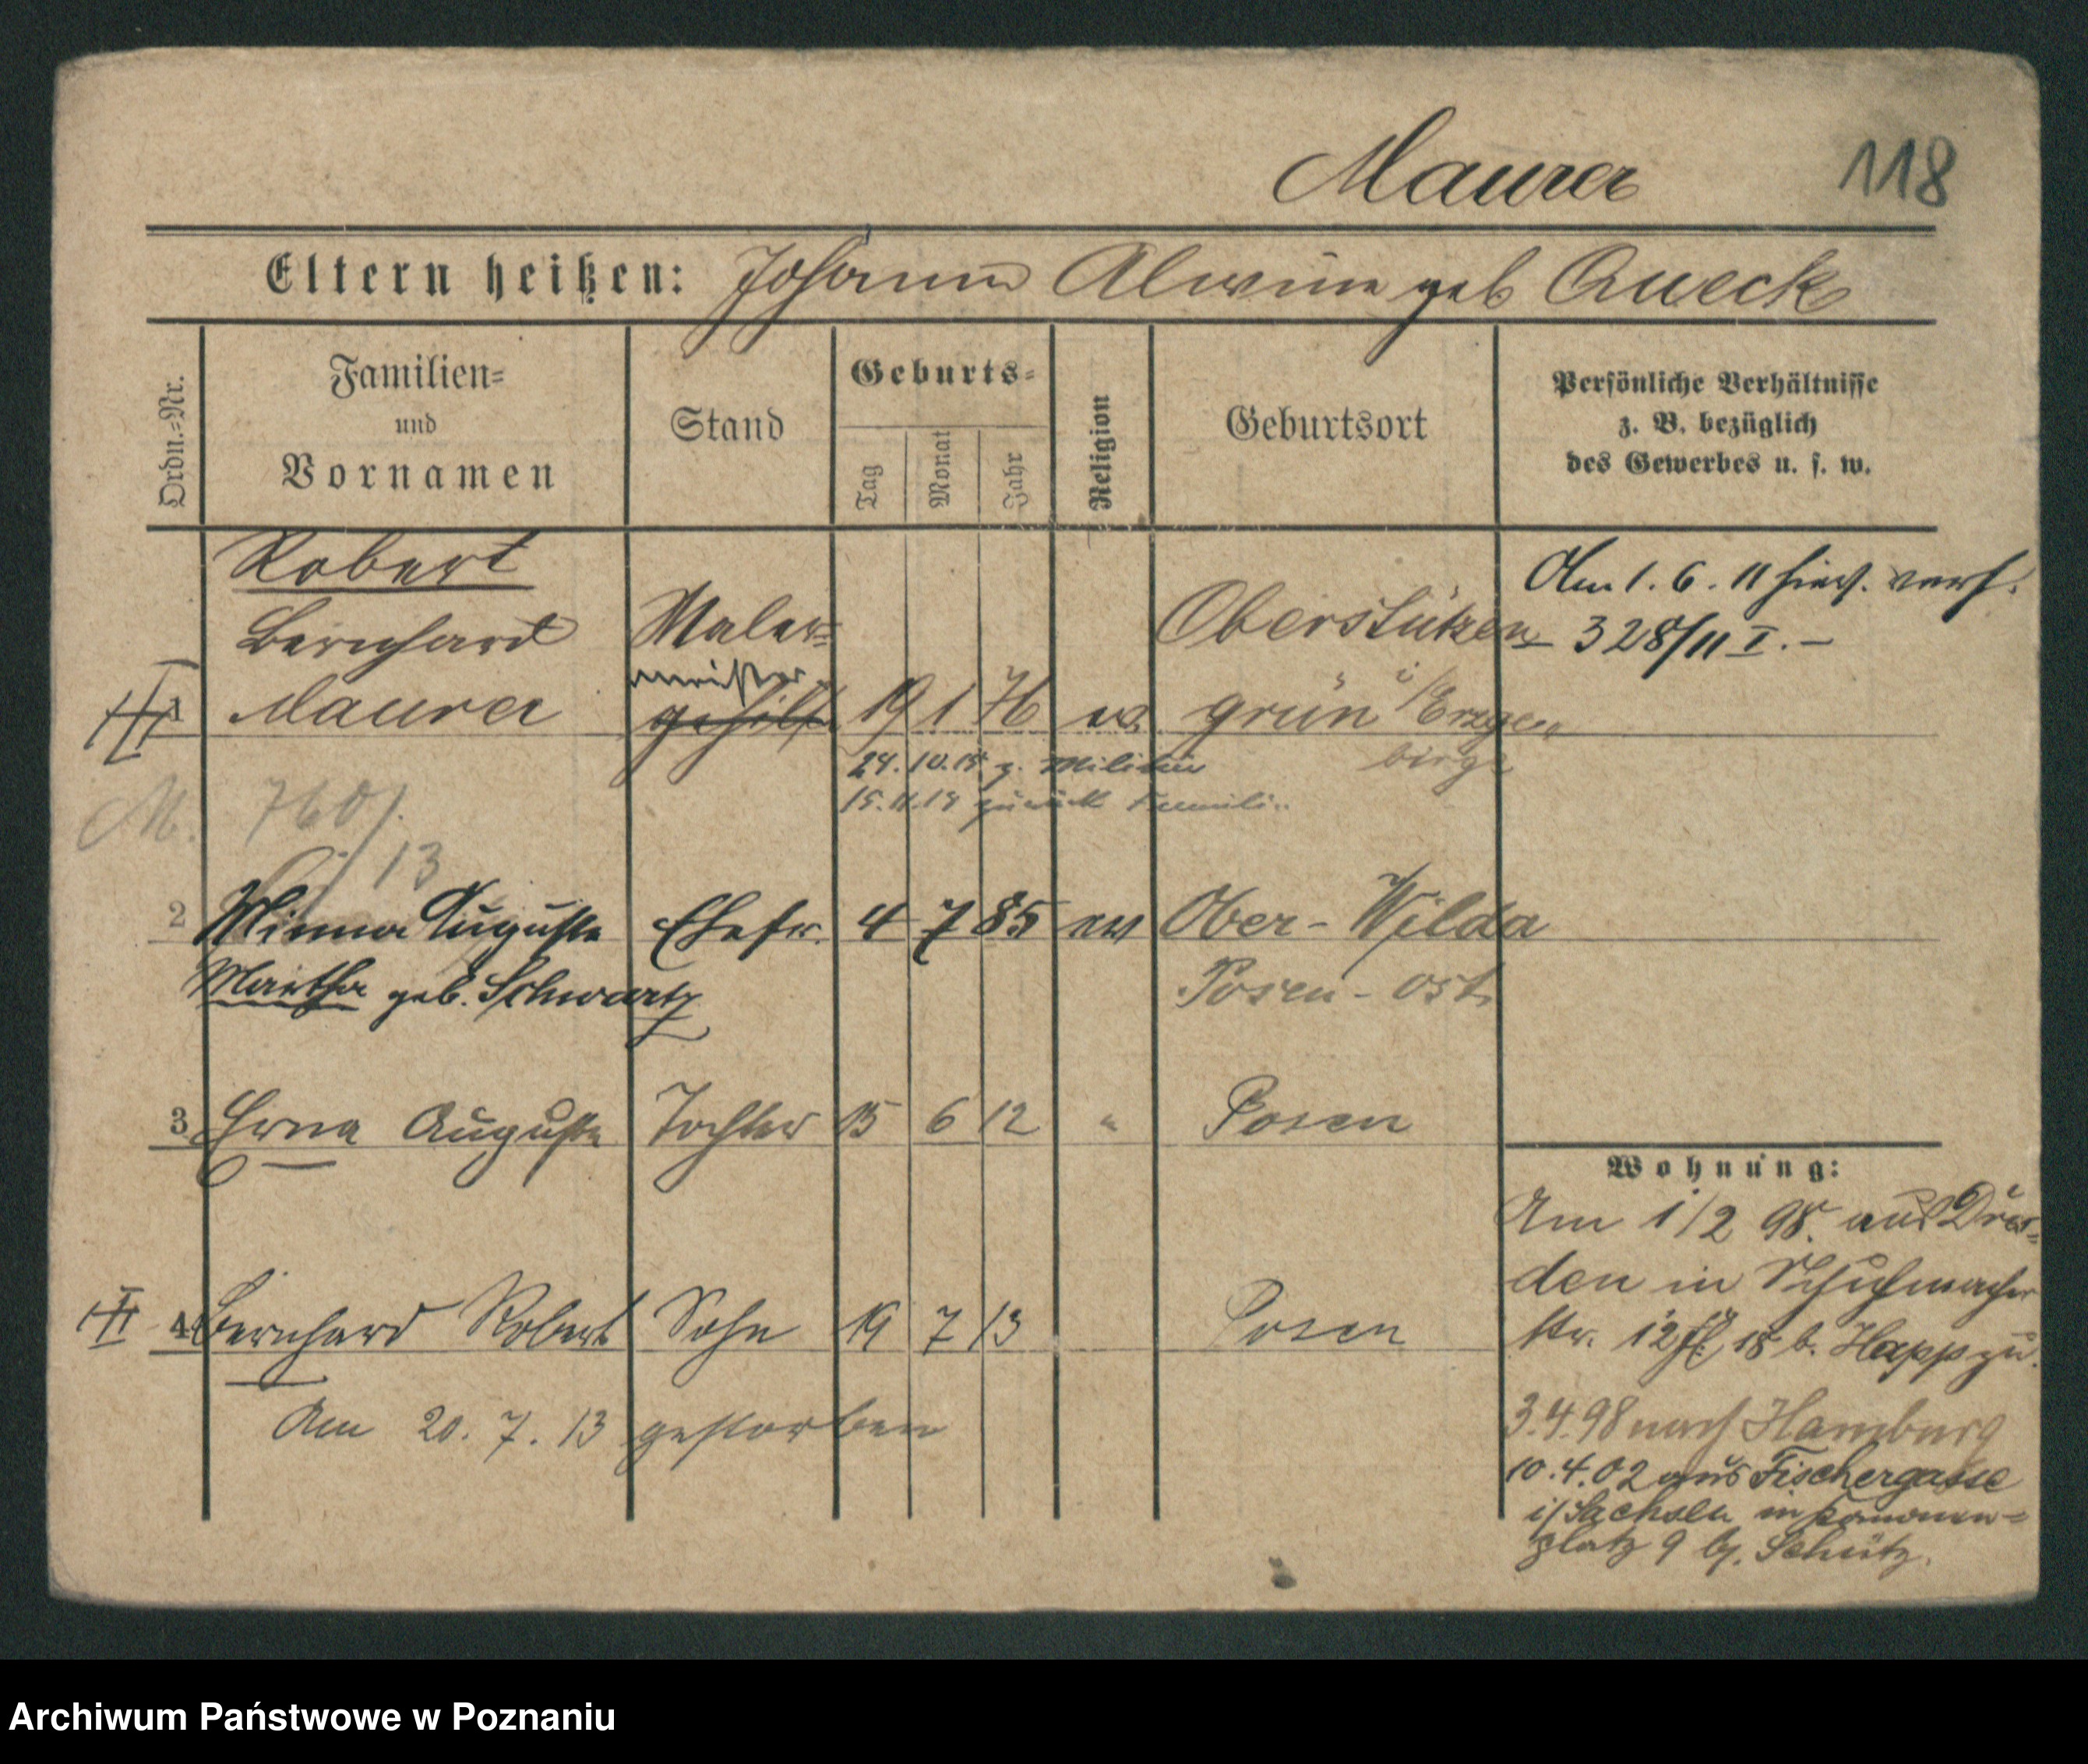 Maurer 118
Eltern heißen: Johann Alwine geb Queck
Ordn.-Nr.
Familien-
und
Vornamen
Stand
Geburts-
Tag
Monat
Jahr
Religion
Geburtsort
Persönliche Verhältnisse
z. B. bezüglich
des Gewerbes u. s. w.
Robert
Bernhard
1 Maurer
Maler-
meister
gehilfe
19 1 76 ev
Oberstützen-
grün i/Erzge-
birge
Am 1. 6. 11 hier. verh.
328/11 I. -
24.10.18 z. Militär
15.11.18 zurück Famili..
M. 760/
13
2 Minna Auguste Ehefr. 4 7 85 ev Ober-Wilda
Martha geb. Schwartz Posen-Ost
3 Erna Auguste Tochter 15 6 12 " Posen
4 Bernhard Robert Sohn 19 7 13 Posen
Am 20. 7. 13 gestorben
Wohnung:
Am 1/2 98. aus Dres-
den in Schuhmacher
str. 12 18 b. Happ zu.
3.4.98 nach Hamburg
10.4.02 aus Fischergasse
i/Sachsen in
platz 9 by. Schütz.
Archiwum Państwowe w Poznaniu